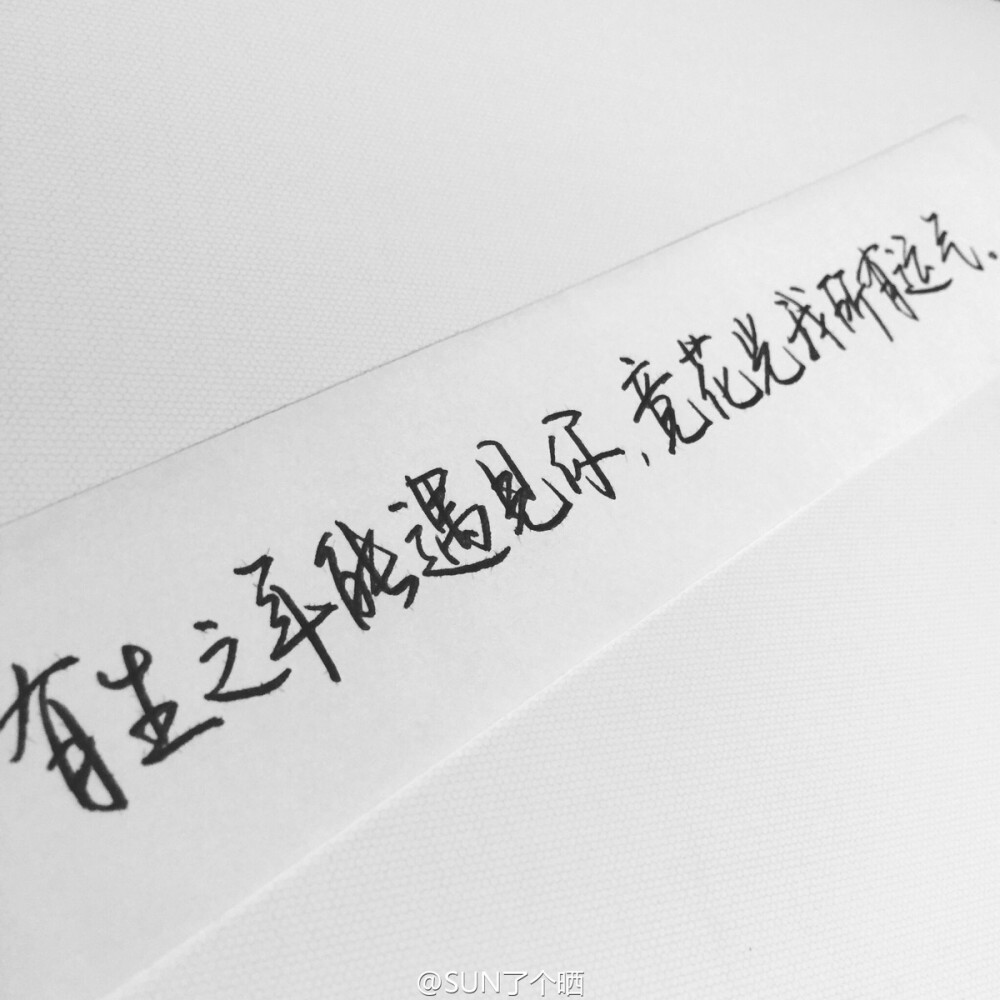 有生之年能遇见你,竟花光我所有运气。
@SUN了个晒